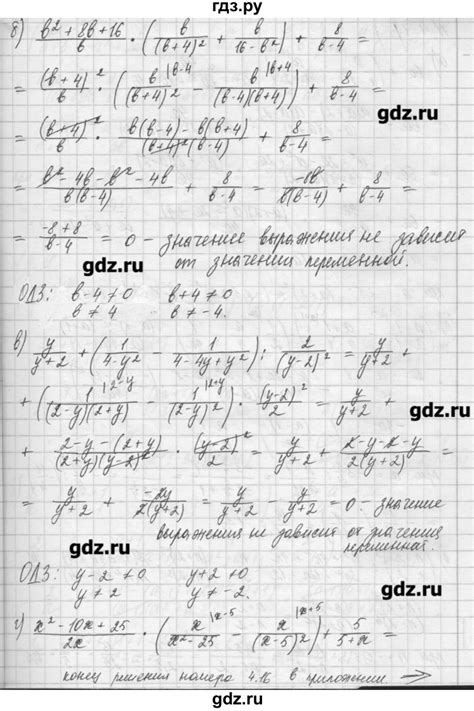 гдз.ру
б) (в²+8в+16)/в · (в/(в+4)² + в/(16-в²)) + 8/(в-4) =
= (в+4)²/в · (в|в-4/(в+4)² - в|в+4/((в-4)(в+4))) + 8/(в-4) =
= (в+4)²/в · (в(в-4)-в(в+4))/((в+4)²(в-4)) + 8/(в-4) =
= (в²-4в-в²-4в)/(в(в-4)) + 8/(в-4) = -8в/(в(в-4)) + 8/(в-4) =
gdz.ru
= (-8+8)/(в-4) = 0 - значение выражения не зависит
от значения переменной.
gdz.ru
ОДЗ: в-4≠0 в+4≠0
в≠4 в≠-4.
в) y/(y+2) + (1/(4-y²) - 1/(4-4y+y²)) : 2/(y-2)² = y/(y+2) +
+ (1|2-y/((2-y)(2+y)) - 1|2+y/(2-y)²) · (y-2)²/2 = y/(y+2) +
gdz.ru
+ (2-y-(2+y))/((2+y)(y-2)²) · (y-2)²/2 = y/(y+2) + (2-y-2-y)/(2(y+2)) =
= y/(y+2) + -2y/(2(y+2)) = y/(y+2) - y/(y+2) = 0 - значение
выражения не зависит от значения
переменной.
gdz.ru
ОДЗ: y-2≠0 y+2≠0
y≠2 y≠-2.
gdz.ru
г) (x²-10x+25)/2x · (x|x-5/(x²-25) - x|x+5/(x-5)²) + 5/(5+x) =
конец решения номера 4.16 в приложении →
gdz.ru